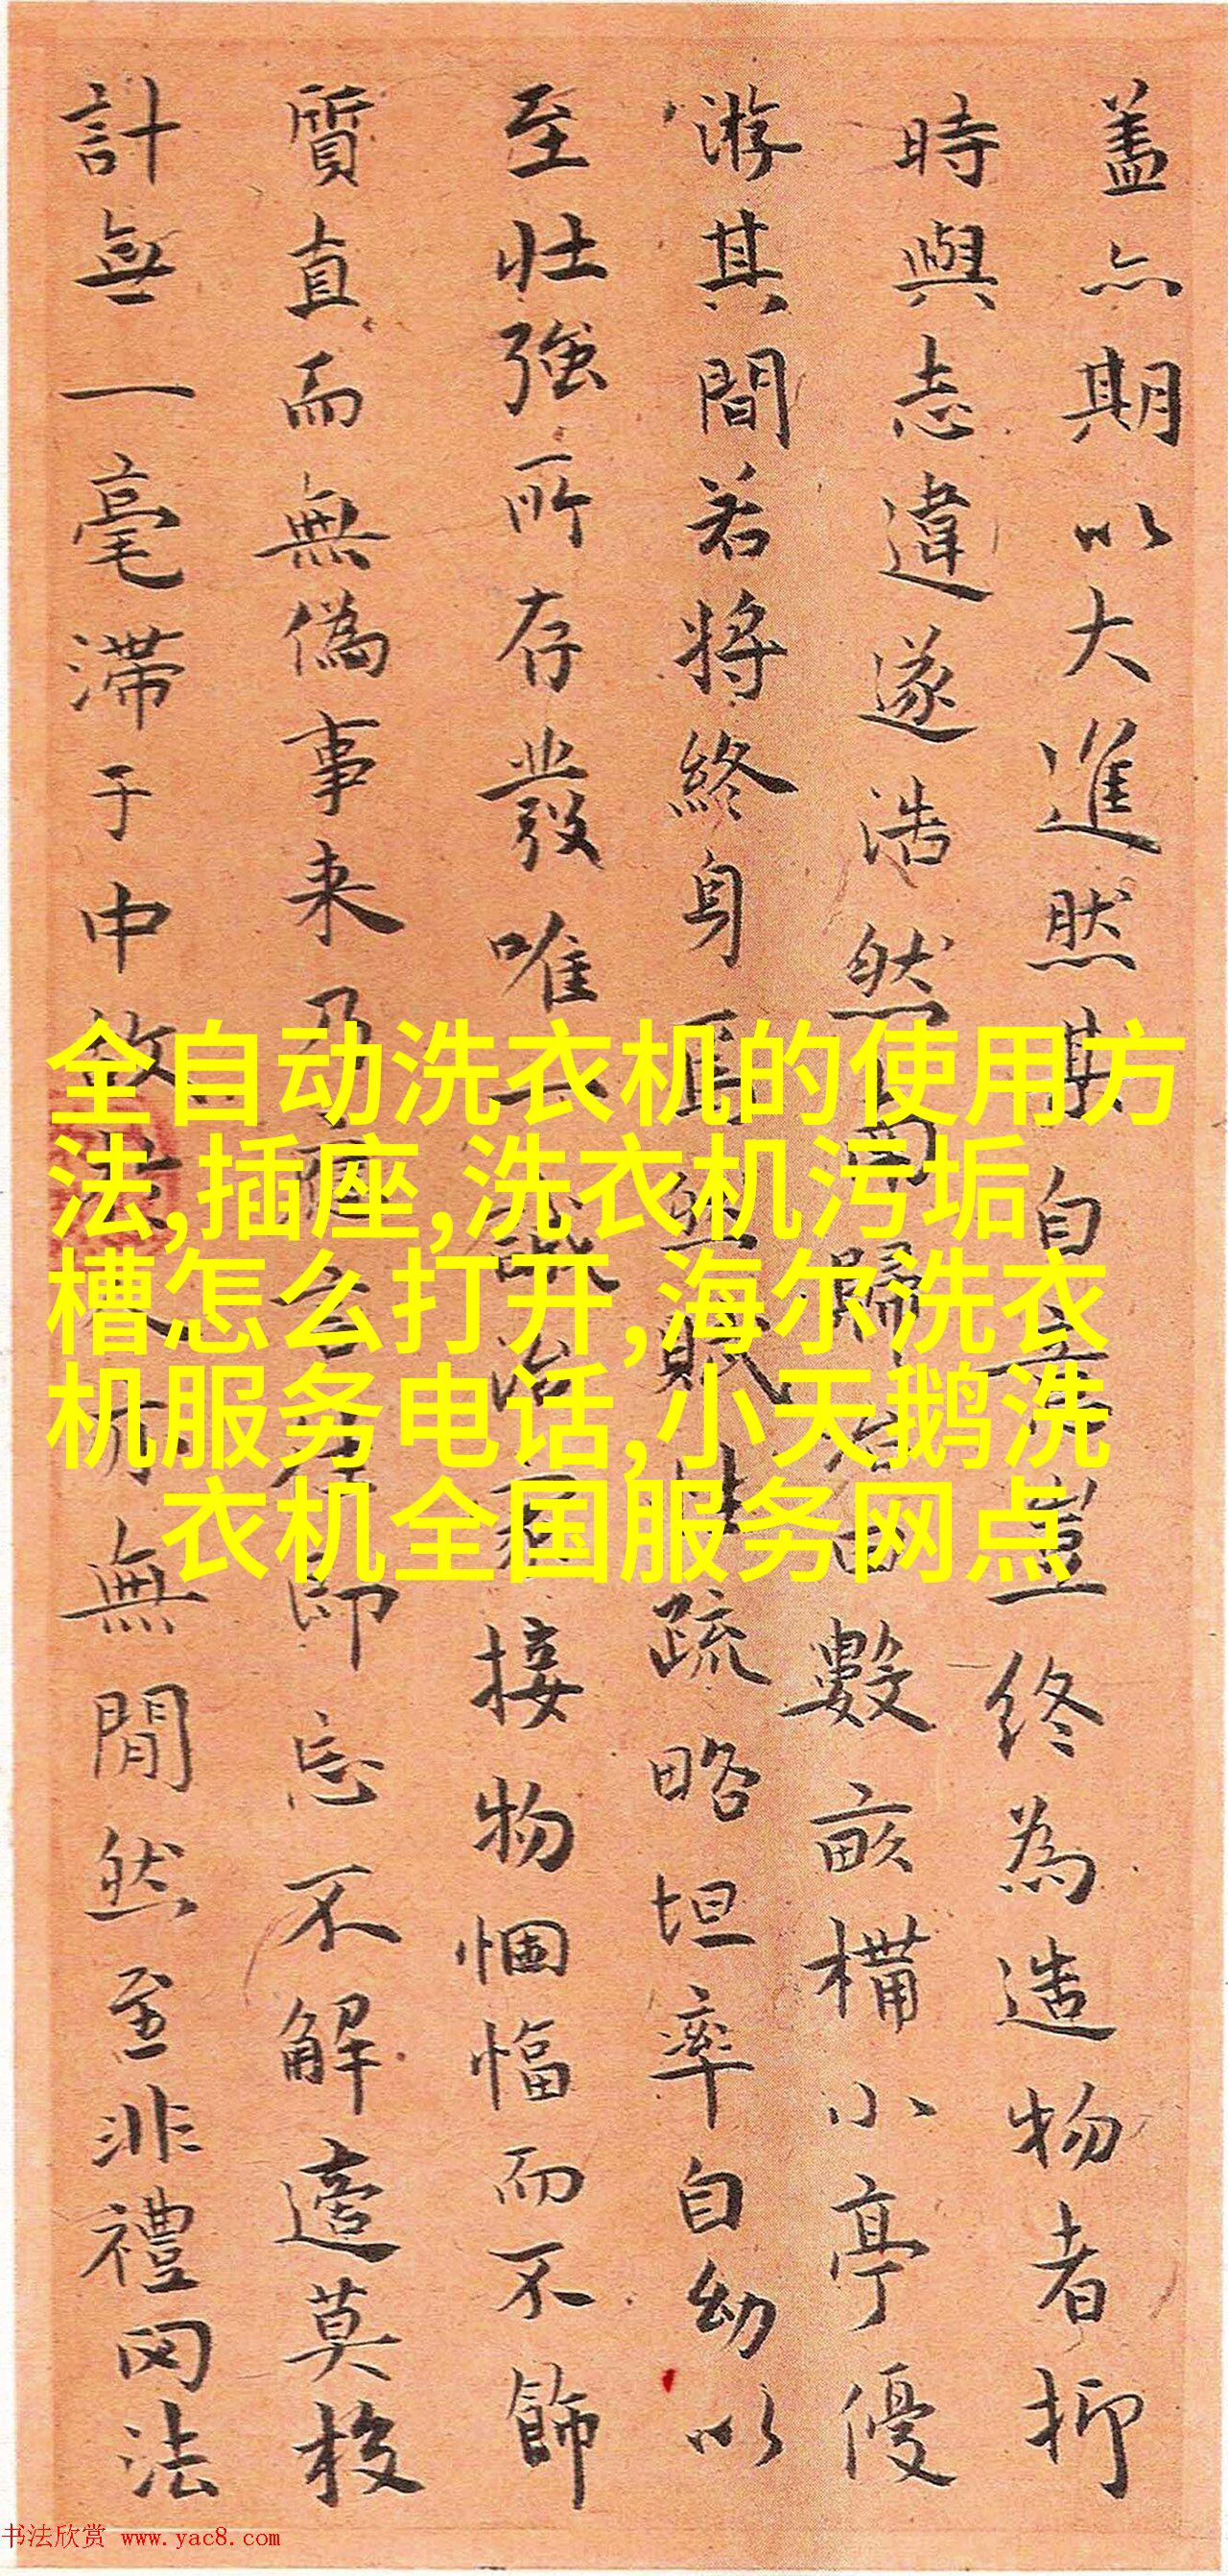 盖亦期以大進然其自弃豈終為造物者抑
時與志違遂浩然而歸田數畝構小亭優
游其間若将終身焉然賦性疏略坦率自幼以
至壮強所存發唯一誠治接物悃愊而不飾
質直而無偽事来乃應言即忘不解邊莫校
計無一毫滞于中故無閒然至非禮网法
全自动洗衣机的使用方
法,插座,洗衣机污垢
槽怎么打开,海尔洗衣
机服务电话,小天鹅洗
衣机全国服务网点
书法欣赏 www.yac8.com